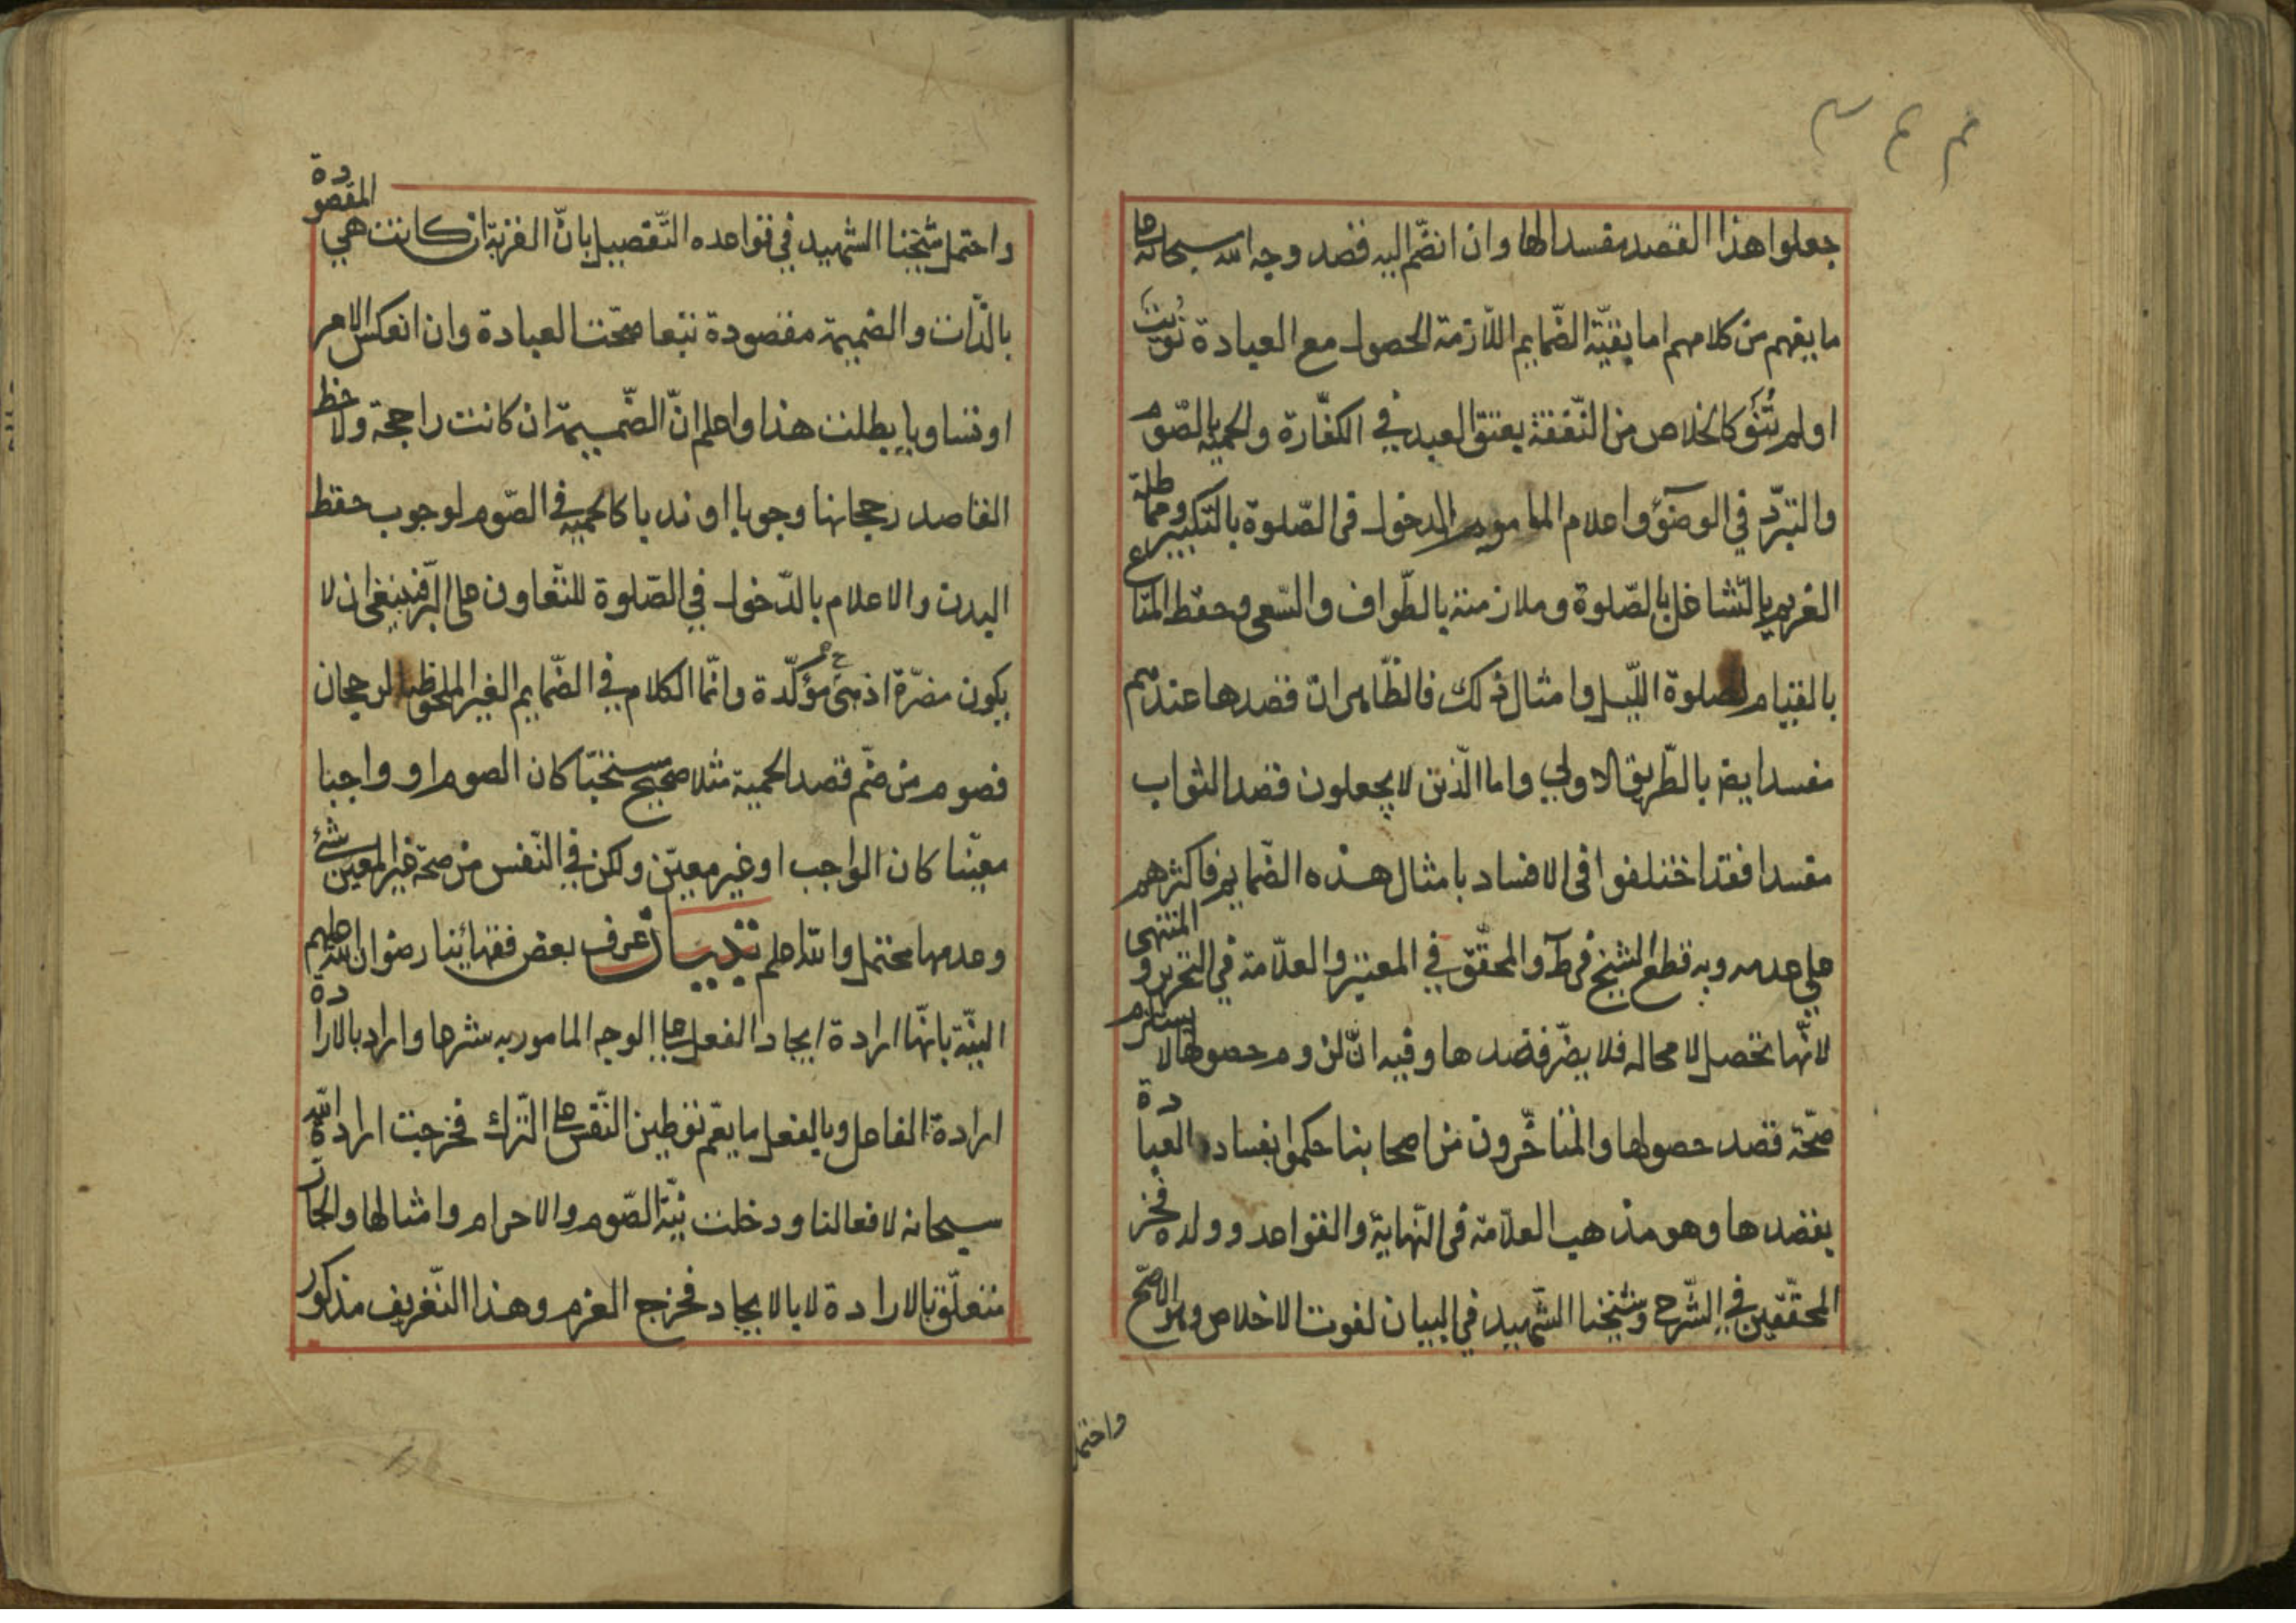 جعلوا هذا القصد مفسدا لها وان انضم اليه قصد وجه الله سبحانه على
ما يفهم من كلامهم اما بقية الضمايم اللازمة الحصول مع العبادة نويت
او لم تنو كالخلاص من النفقة بعتق العبد في الكفارة والحمية بالصوم
والتبرد في الوضوء واعلام الماموم الدخول في الصلوة بالتكبير ومماطلة
الغريم بالتشاغل بالصلوة وملازمته بالطواف والسعى وحفظ المتاع
بالقيام لصلوة الليل وامثال ذلك فالظاهر ان قصدها عندهم
مفسد ايضا بالطريق الاولى واما الذين لا يجعلون قصد الثواب
مفسدا فقد اختلفوا فى الافساد بامثال هذه الضمايم فاكثرهم
على عدمه وبه قطع الشيخ في ط والمحقق في المعتبر والعلامة في التحرير والمنتهى
لانها تحصل لا محاله فلا يضر قصدها وفيه ان لزوم حصولها لا يستلزم
صحة قصد حصولها والمتاخرون من اصحابنا حكموا بفساد العبادة
بقصدها وهو مذهب العلامة فى النهاية والقواعد وولده فخر
المحققين في الشرح وشيخنا الشهيد في البيان لفوت الاخلاص وهو الاصح
واحتمل
واحتمل شيخنا الشهيد في قواعده التفصيل بان القربة ان كانت هي المقصودة
بالذات والضميمة مقصودة تبعا صحت العبادة وان انعكس الامر
او تساويا بطلت هذا واعلم ان الضميمة ان كانت راجحة ولاحظ
القاصد رجحانها وجوبا او ندبا كالحمية في الصوم لوجوب حفظ
البدن والاعلام بالدخول في الصلوة للتعاون على البر فينبغى ان لا
يكون مضرة اذ هى ح مؤكدة وانما الكلام في الضمايم الغير الملحوظة الرجحان
فصوم من ضم قصد الحمية مثلا صحيح مستحبا كان الصوم او واجبا
معينا كان الواجب او غير معين ولكن في النفس من صحة غير المعين شئ
وعدمها محتمل والله اعلم تبيان عرف بعض فقهائنا رضوان الله عليهم
النية بانها ارادة ايجاد الفعل على الوجه المامور به شرعا واراد بالارادة
ارادة الفاعل وبالفعل ما يعم توطين النفس على الترك فخرجت ارادة الله
سبحانه لافعالنا ودخلت نية الصوم والاحرام وامثالها والجار
متعلق بالارادة لا بالايجاد فخرج العزم وهذا التعريف مذكور